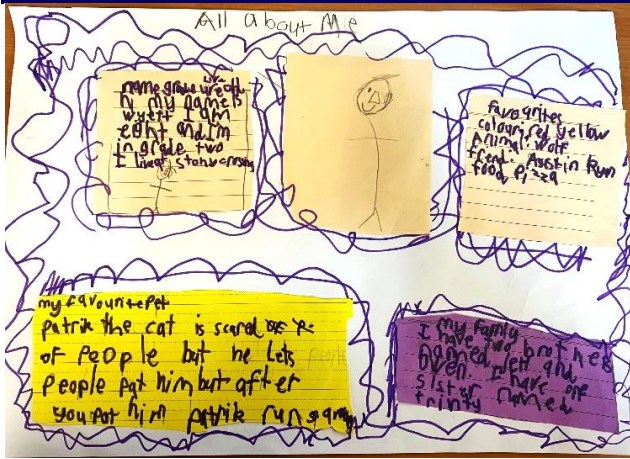 All about Me
name grade
hi my name is
wyett I am
eight and I'm
in grade two
I live at stony crossing
Favourites
colour: red yellow
Animal: wolf
frend:
food pizza
my favourite pet
patrik the cat is scared
of people but he lets
people pat him but after
you pat him patrik runs away
my family
I have two brothers
named and
owen. I have one
sister named
trinty